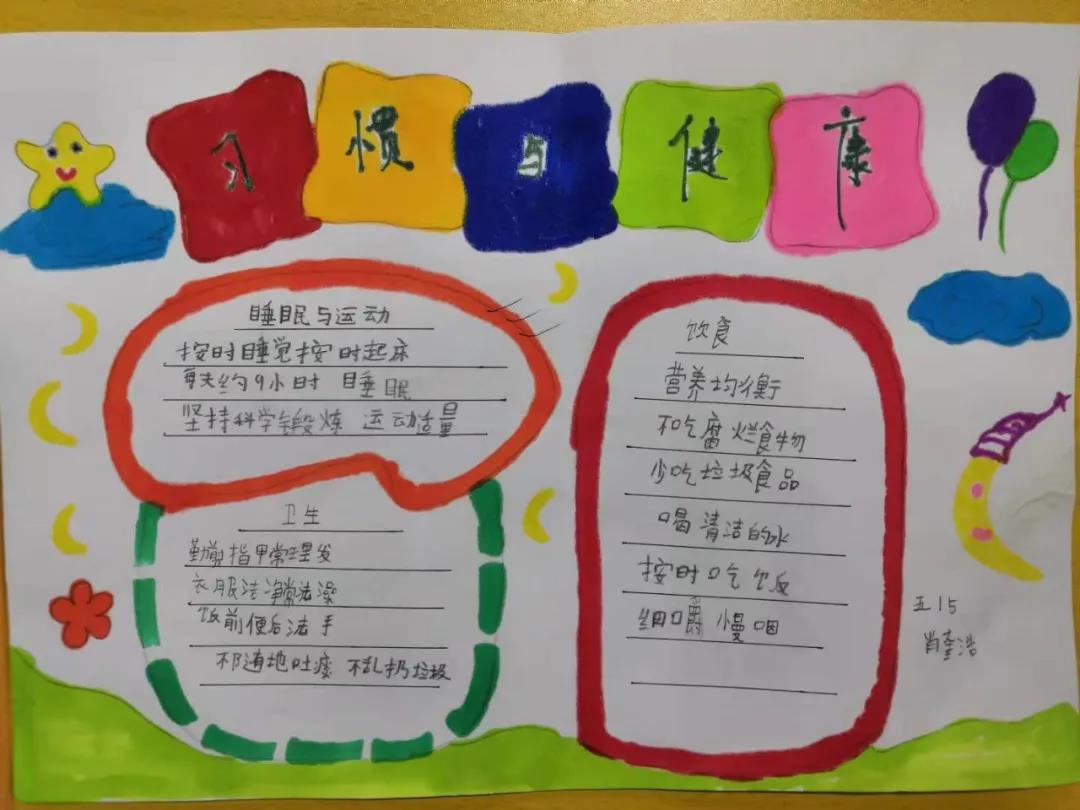 习惯与健康
睡眠与运动
按时睡觉按时起床
每天约9小时 睡眠
坚持科学锻炼 运动适量
卫生
勤剪指甲常理发
衣服洁净常洗澡
饭前便后洗手
不随地吐痰 不乱扔垃圾
饮食
营养均衡
不吃腐烂食物
少吃垃圾食品
喝清洁的水
按时吃饭
细嚼慢咽
五15
肖奎浩